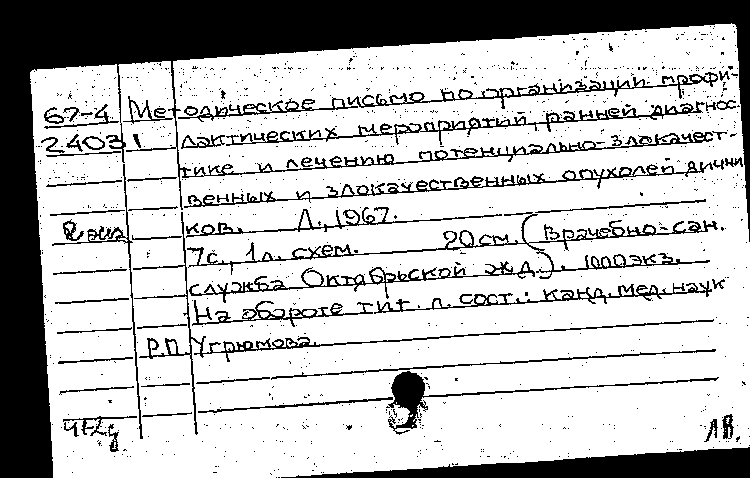 67-4 Методическое письмо по организации профи-
24031 лактических мероприятий, ранней диагнос
тике и лечению потенциально-злокачест-
венных и злокачественных опухолей яични
ков. Л., 1967.
2 экз.
7с., 1л. схем. 20см. (Врачебно-сан.
служба Октябрьской ж.д.). 1000экз.
На обороте тит. л. сост.: канд. мед. наук
Р.П. Угрюмова.
1В.